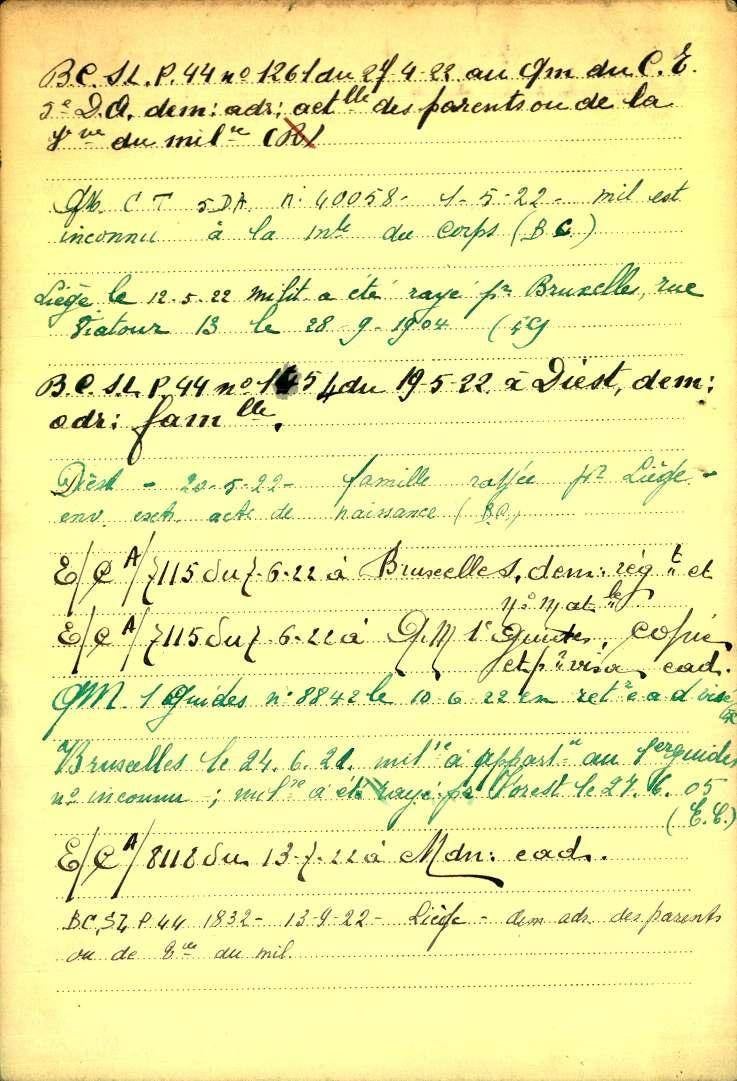 B.C. S.L. P. 44 n° 1261 du 27 4-22 au Qm du C. E.
5e D.A. dem: adr: actlle des parents ou de la
ve du milre (R)
QM. C T 5DA n° 40058 - 1-5-22 - mil est
inconnu à la mle du corps (BC)
Liège le 12-5-22 milit a été rayé pr Bruxelles, rue
Viatour 13 le 28-9-1904
B.C. S.L. P 44 n° 1454 du 19-5-22 à Diest, dem:
adr: famlle.
Diest - 20-5-22 - famille rayée pr Liège -
env. extr. acte de naissance (B.C.)
E/CA/7115 du 7-6-22 à Bruxelles, dem: régt et
n° matle
E/CA/7115 du 7-6-22 à Q.M 1e Guides, copie
et pr visa cad.
QM 1 Guides n° 8842 le 10-6-22 en ret cad visé
Bruxelles le 24.6.22. milre a appartnu au 1er guides
n° inconnu ; milre a été rayé pr Forest le 27.6.05
(E.C.)
E/CA/8112 du 13-7-22 à Mdn: cad.
BC, SL P 44 1832 - 13-9-22 - Liège - dem adr des parents
ou de ve du mil.